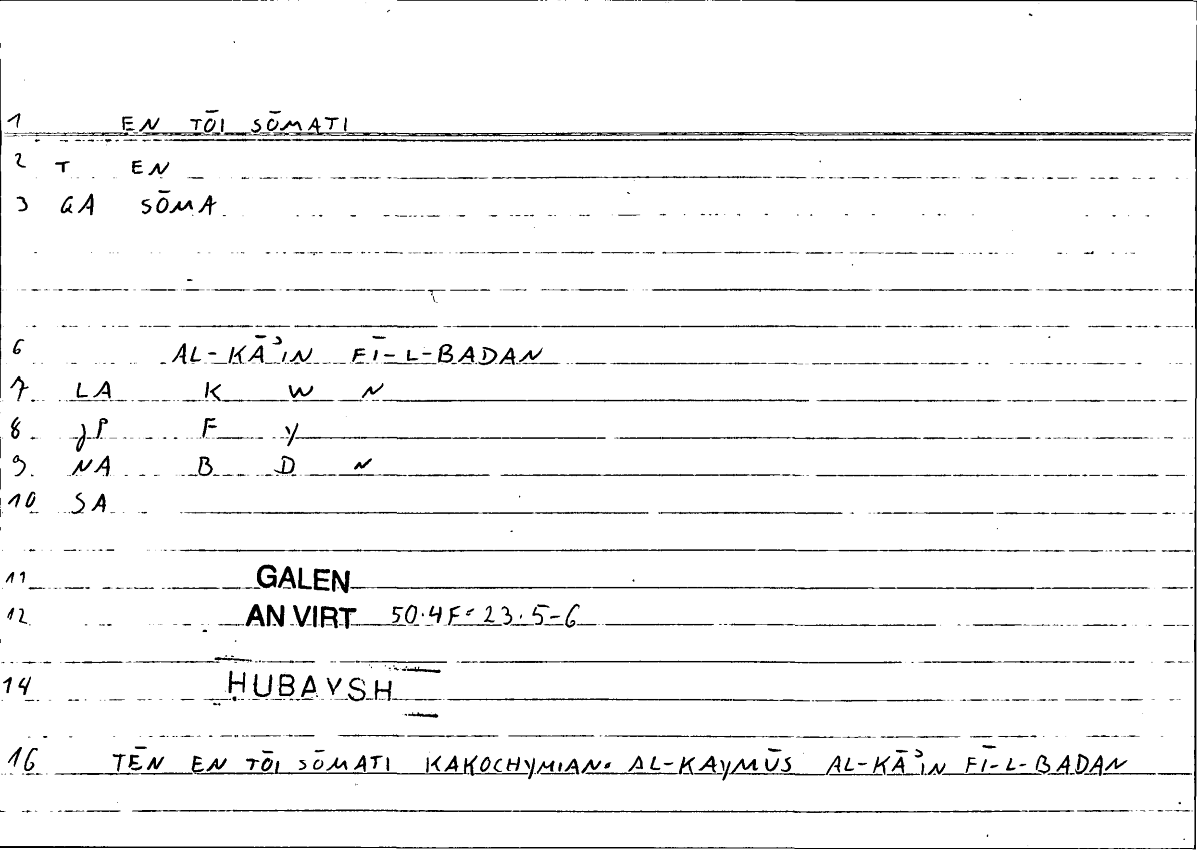 1 EN TŌI SŌMATI
2 T EN
3 GA SŌMA
6 AL-KĀʾIN FĪ-L-BADAN
7 LA K W N
8 JP F Y
9. NA B D N
10 SA
11 GALEN
12 AN VIRT 50.4F=23.5-6
14 ḤUBAYSH
16 TĒN EN TŌI SŌMATI KAKOCHYMIAN= AL-KAYMŪS AL-KĀʾIN FĪ-L-BADAN